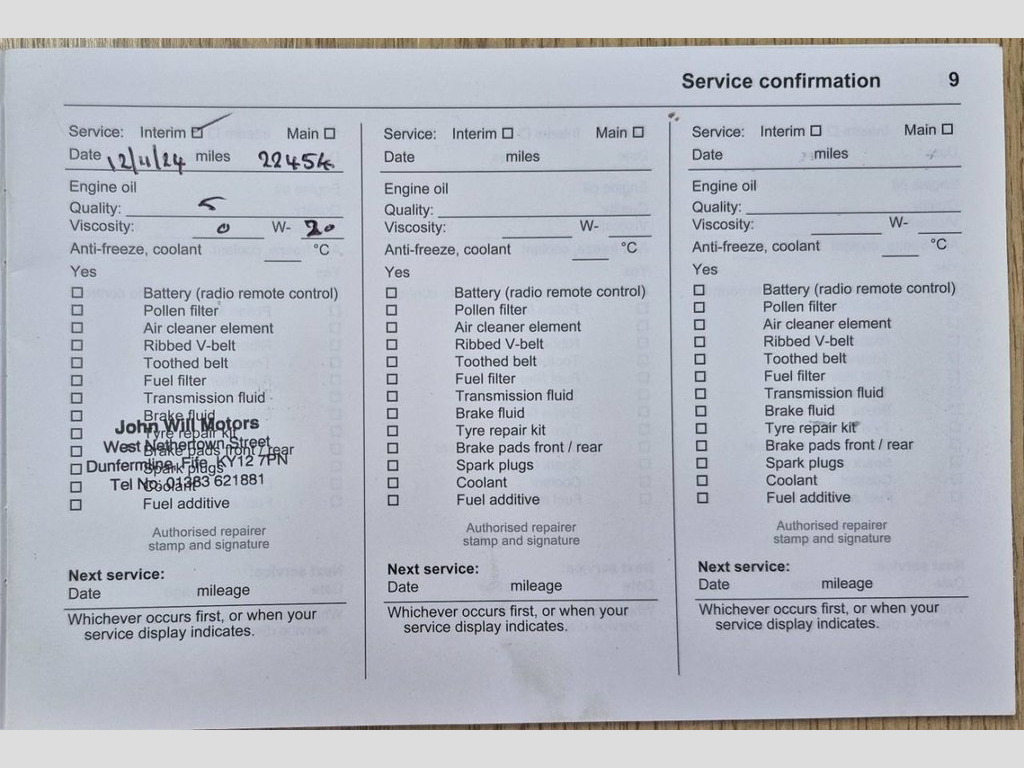 Service confirmation 9
Service: Interim Main
Date 12/11/24 miles 22454
Engine oil
Quality: 5
Viscosity: 0 W- 20
Anti-freeze, coolant °C
Yes
Battery (radio remote control)
Pollen filter
Air cleaner element
Ribbed V-belt
Toothed belt
Fuel filter
Transmission fluid
Brake fluid
John Will Motors
Tyre repair kit
West Nethertown Street
Brake pads front / rear
Dunfermline, Fife, KY12 7PN
Spark plugs
Tel No. 01383 621881
Coolant
Fuel additive
Authorised repairer
stamp and signature
Next service:
Date mileage
Whichever occurs first, or when your
service display indicates.
Service: Interim Main
Date miles
Engine oil
Quality:
Viscosity: W-
Anti-freeze, coolant °C
Yes
Battery (radio remote control)
Pollen filter
Air cleaner element
Ribbed V-belt
Toothed belt
Fuel filter
Transmission fluid
Brake fluid
Tyre repair kit
Brake pads front / rear
Spark plugs
Coolant
Fuel additive
Authorised repairer
stamp and signature
Next service:
Date mileage
Whichever occurs first, or when your
service display indicates.
Service: Interim Main
Date miles
Engine oil
Quality:
Viscosity: W-
Anti-freeze, coolant °C
Yes
Battery (radio remote control)
Pollen filter
Air cleaner element
Ribbed V-belt
Toothed belt
Fuel filter
Transmission fluid
Brake fluid
Tyre repair kit
Brake pads front / rear
Spark plugs
Coolant
Fuel additive
Authorised repairer
stamp and signature
Next service:
Date mileage
Whichever occurs first, or when your
service display indicates.